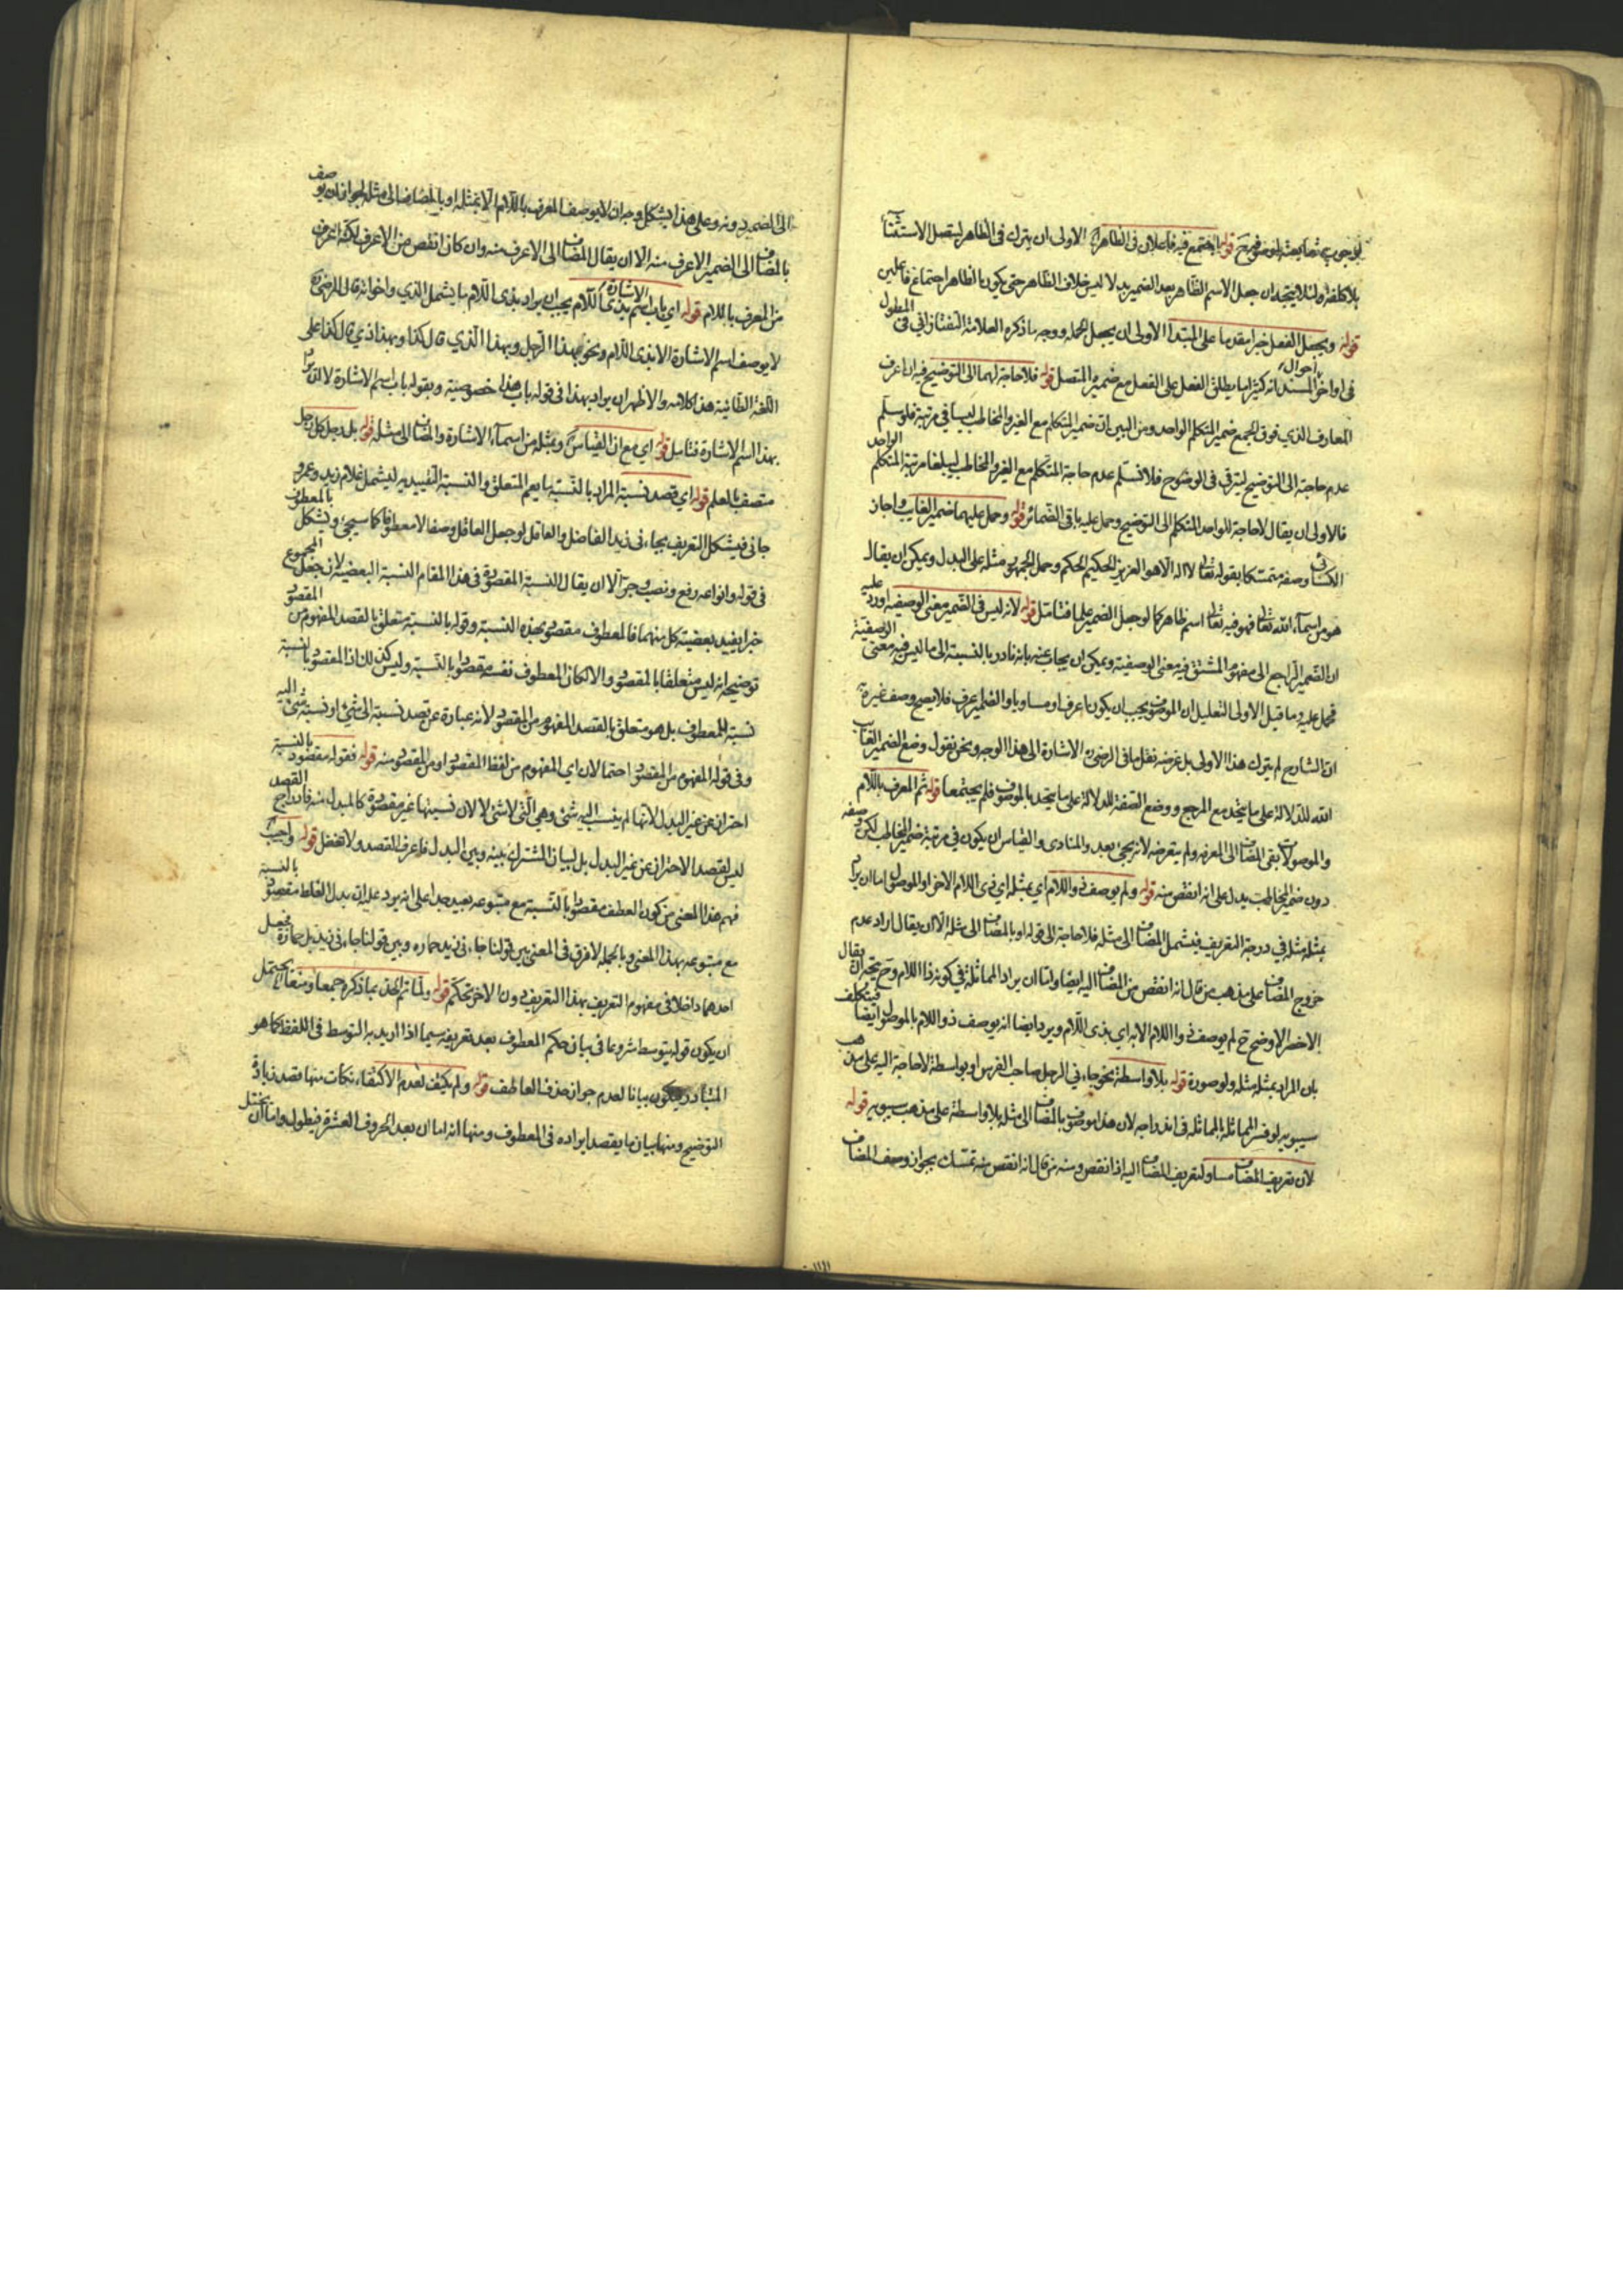 لوجوب متابعته لموصوفه ع قوله يجتمع فيه فاعلان في الظاهر الاولى ان يترك في الظاهر ليتصل الاستثناء
بلا كلفة ولئلا يتجه ان جعل الاسم الظاهر بعد الضمير بدلا ليس خلاف الظاهر حتى يكون بالظاهر اجتماع فاعلين
قوله ويجعل الفعل خبرا مقدما على المبتدا الاولى ان يجعل الجملة ووجه ما ذكره العلامة التفتازاني في المطول
في اواخر احوال المسند انه كثيرا ما يطلق الفعل على الفعل مع ضميره المتصل قوله فلا حاجة لهما الى التوضيح فيه ان اعرف
المعارف الذي فوق الجميع ضمير المتكلم الواحد ومن البين ان ضمير المتكلم مع الغير والمخاطب ليسا في مرتبة فلو سلم
عدم حاجته الى التوضيح ليترقى في الوضوح فلا نسلم عدم حاجة المتكلم مع الغير والمخاطب ليبلغا مرتبة المتكلم الواحد
فالاولى ان يقال لا حاجة للواحد المتكلم الى التوضيح وحمل عليه باقي الضمائر قوله وحمل عليهما ضمير الغايب واجاز
الكسائي وصفه متمسكا بقوله تعالى لا اله الا هو العزيز الحكيم وحمل الجمهور مثله على البدل ويمكن ان يقال
هو من اسماء الله تعالى فهو فيه تعالى اسم ظاهر كما لو جعل الضمير علما فتامل قوله لانه ليس في الضمير معنى الوصفية اورد عليه
ان الضمير الراجع الى مفهوم المشتق فيه معنى الوصفية ويمكن ان يجاب عنه بانه نادر بالنسبة الى ما ليس فيه معنى الوصفية
فحمل عليه وما قيل الاولى التعليل ان الموصوف يجب ان يكون اعرف او مساويا والضمير اعرف فلا يصح وصف غيره به
ان الشارح لم يترك هذا الاولى بل غرضه نقل ما في الرضى الاشارة الى هذا الوجه ونحن نقول وضع الضمير الغايب
الله للدلالة على ما يتحد مع المرجع ووضع الصفة للدلالة على ما يتحد بالموصوف فلم يجتمعا قوله ثم المعرف باللام
والموصولات بقي المضاف الى المعرفة ولم يتعرضه لانه يجيء بعد والمنادى والقياس ان يكون في مرتبة ضمير المخاطب لكن وصفه
دون ضمير المخاطب يدل على انه انقص منه قوله ولم يوصف ذو اللام اي بمثله اي ذي اللام الاخر او الموصول اما ان يراد
بمثله مثله في درجة التعريف فيشمل المضاف الى مثله فلا حاجة الى قوله او بالمضاف الى مثله الا ان يقال اراد عدم
خروج المضاف على مذهب من قال انه انقص من المضاف اليه ايضا واما ان يراد المماثلة في كونه ذا اللام وح يتجه ان يقال
الاخصر الاوضح ح لم يوصف ذو اللام الا به اي بذي اللام ويرد ايضا انه يوصف ذو اللام بالموصول ايضا فيتكلف
بان المراد بمثله مثله ولو صورة قوله بلا واسطة نحو جاءني الرجل صاحب الفرس او بواسطة لا حاجة اليه على مذهب
سيبويه لو فسر المماثلة بالمماثلة في اندراجه لان هذا موصوف بالمضاف الى مثله بلا واسطة على مذهب سيبويه قوله
لان تعريف المضاف مساو لتعريف المضاف اليه او انقص منه من قال انه انقص منه تمسك بجواز وصف المضاف
الى الضمير دونه وعلى هذا يشكل وجه ان لا يوصف المعرف باللام الا بمثله او بالمضاف الى مثله لجواز ان يوصف
بالمضاف الى الضمير الاعرف منه الا ان يقال المضاف الى الاعرف منه وان كان انقص من الاعرف لكنه اعرف
من المعرف باللام قوله اي باب اسم الاشارة بذي اللام يجب ان يراد بذي اللام ما يشمل الذي واخواته قال الرضى
لا يوصف اسم الاشارة الا بذي اللام ونحو بهذا الرجل وبهذا الذي قال كذا وبهذا ذي قال كذا على
اللغة الطائية هذا كلامه والاظهر ان يراد بهذا في قوله باب هذا خصوصية وبقوله باب اسم الاشارة لا ان يراد
بهذا اسم الاشارة فتامل قوله اي مع ان القياس وبمثله من اسماء الاشارة والمضاف الى مثله قوله بل رجل كل رجل
متصف بالعلم قوله اي قصد نسبة المراد بالنسبة ما يعم المتعلق والنسبة التقييدية ليشمل غلام زيد وعمرو
جاءني فيشكل التعريف بجاءني زيد الفاضل والعاقل لو جعل العاقل وصفا لا معطوفا كما سيجيء ويشكل بالمعطوف
في قوله وانواعه رفع ونصب وجر الا ان يقال النسبة المقصودة في هذا المقام النسبة البعضية لان جعل المجموع
خبرا يفيد بعضية كل منهما فالمعطوف مقصود بهذه النسبة وقوله بالنسبة متعلق بالقصد المفهوم من المقصود
توضيحه انه ليس متعلقا بالمقصود والا لكان المعطوف نفسه مقصودا بالنسبة وليس كذلك اذ المقصود بالنسبة
نسبة المعطوف بل هو متعلق بالقصد المفهوم من المقصود لانه عبارة عن قصد نسبة الى شيء او نسبة شيء اليه
وفي قوله المفهوم من المقصود احتمالان اي المفهوم من لفظ المقصود او من المقصود منه قوله فقوله مقصود بالنسبة
احتراز عن غير البدل لانها لم ينسب اليه شيء وهي التي لا شيء لا لان نسبتها غير مقصودة كالمبدل منه فان راجح القصد
ليس لقصد الاحتراز عن غير البدل بل لبيان المشترك بينه وبين البدل فاعرف القصد ولا تغفل قوله واجيب
فهم هذا المعنى من كون العطف مقصودا بالنسبة مع متبوعه بعيد جدا على انه يرد عليه ان بدل الغلط مقصود بالنسبة
مع متبوعه بهذا المعنى وبالجملة لا فرق في المعنى بين قولنا جاءني زيد حماره وبين قولنا جاءني زيد بل حماره فجعل
احدهما داخلا في مفهوم التعريف بهذا التعريف دون الاخر تحكم قوله ولما تم الحد بما ذكره جمعا ومنعا يحتمل
ان يكون قوله يتوسط شروعا في بيان حكم المعطوف بعد تعريفه سيما اذا اريد به التوسط في اللفظ كما هو
المتبادر ويكون بيانا لعدم جواز حذف العاطف قوله ولم يكتف لعدم الاكتفاء نكات منها قصد زيادة
التوضيح ومنها بيان ما يقصد ايراده في المعطوف ومنها انه اما ان يعد الحروف العشرة فيطول واما ان يختل